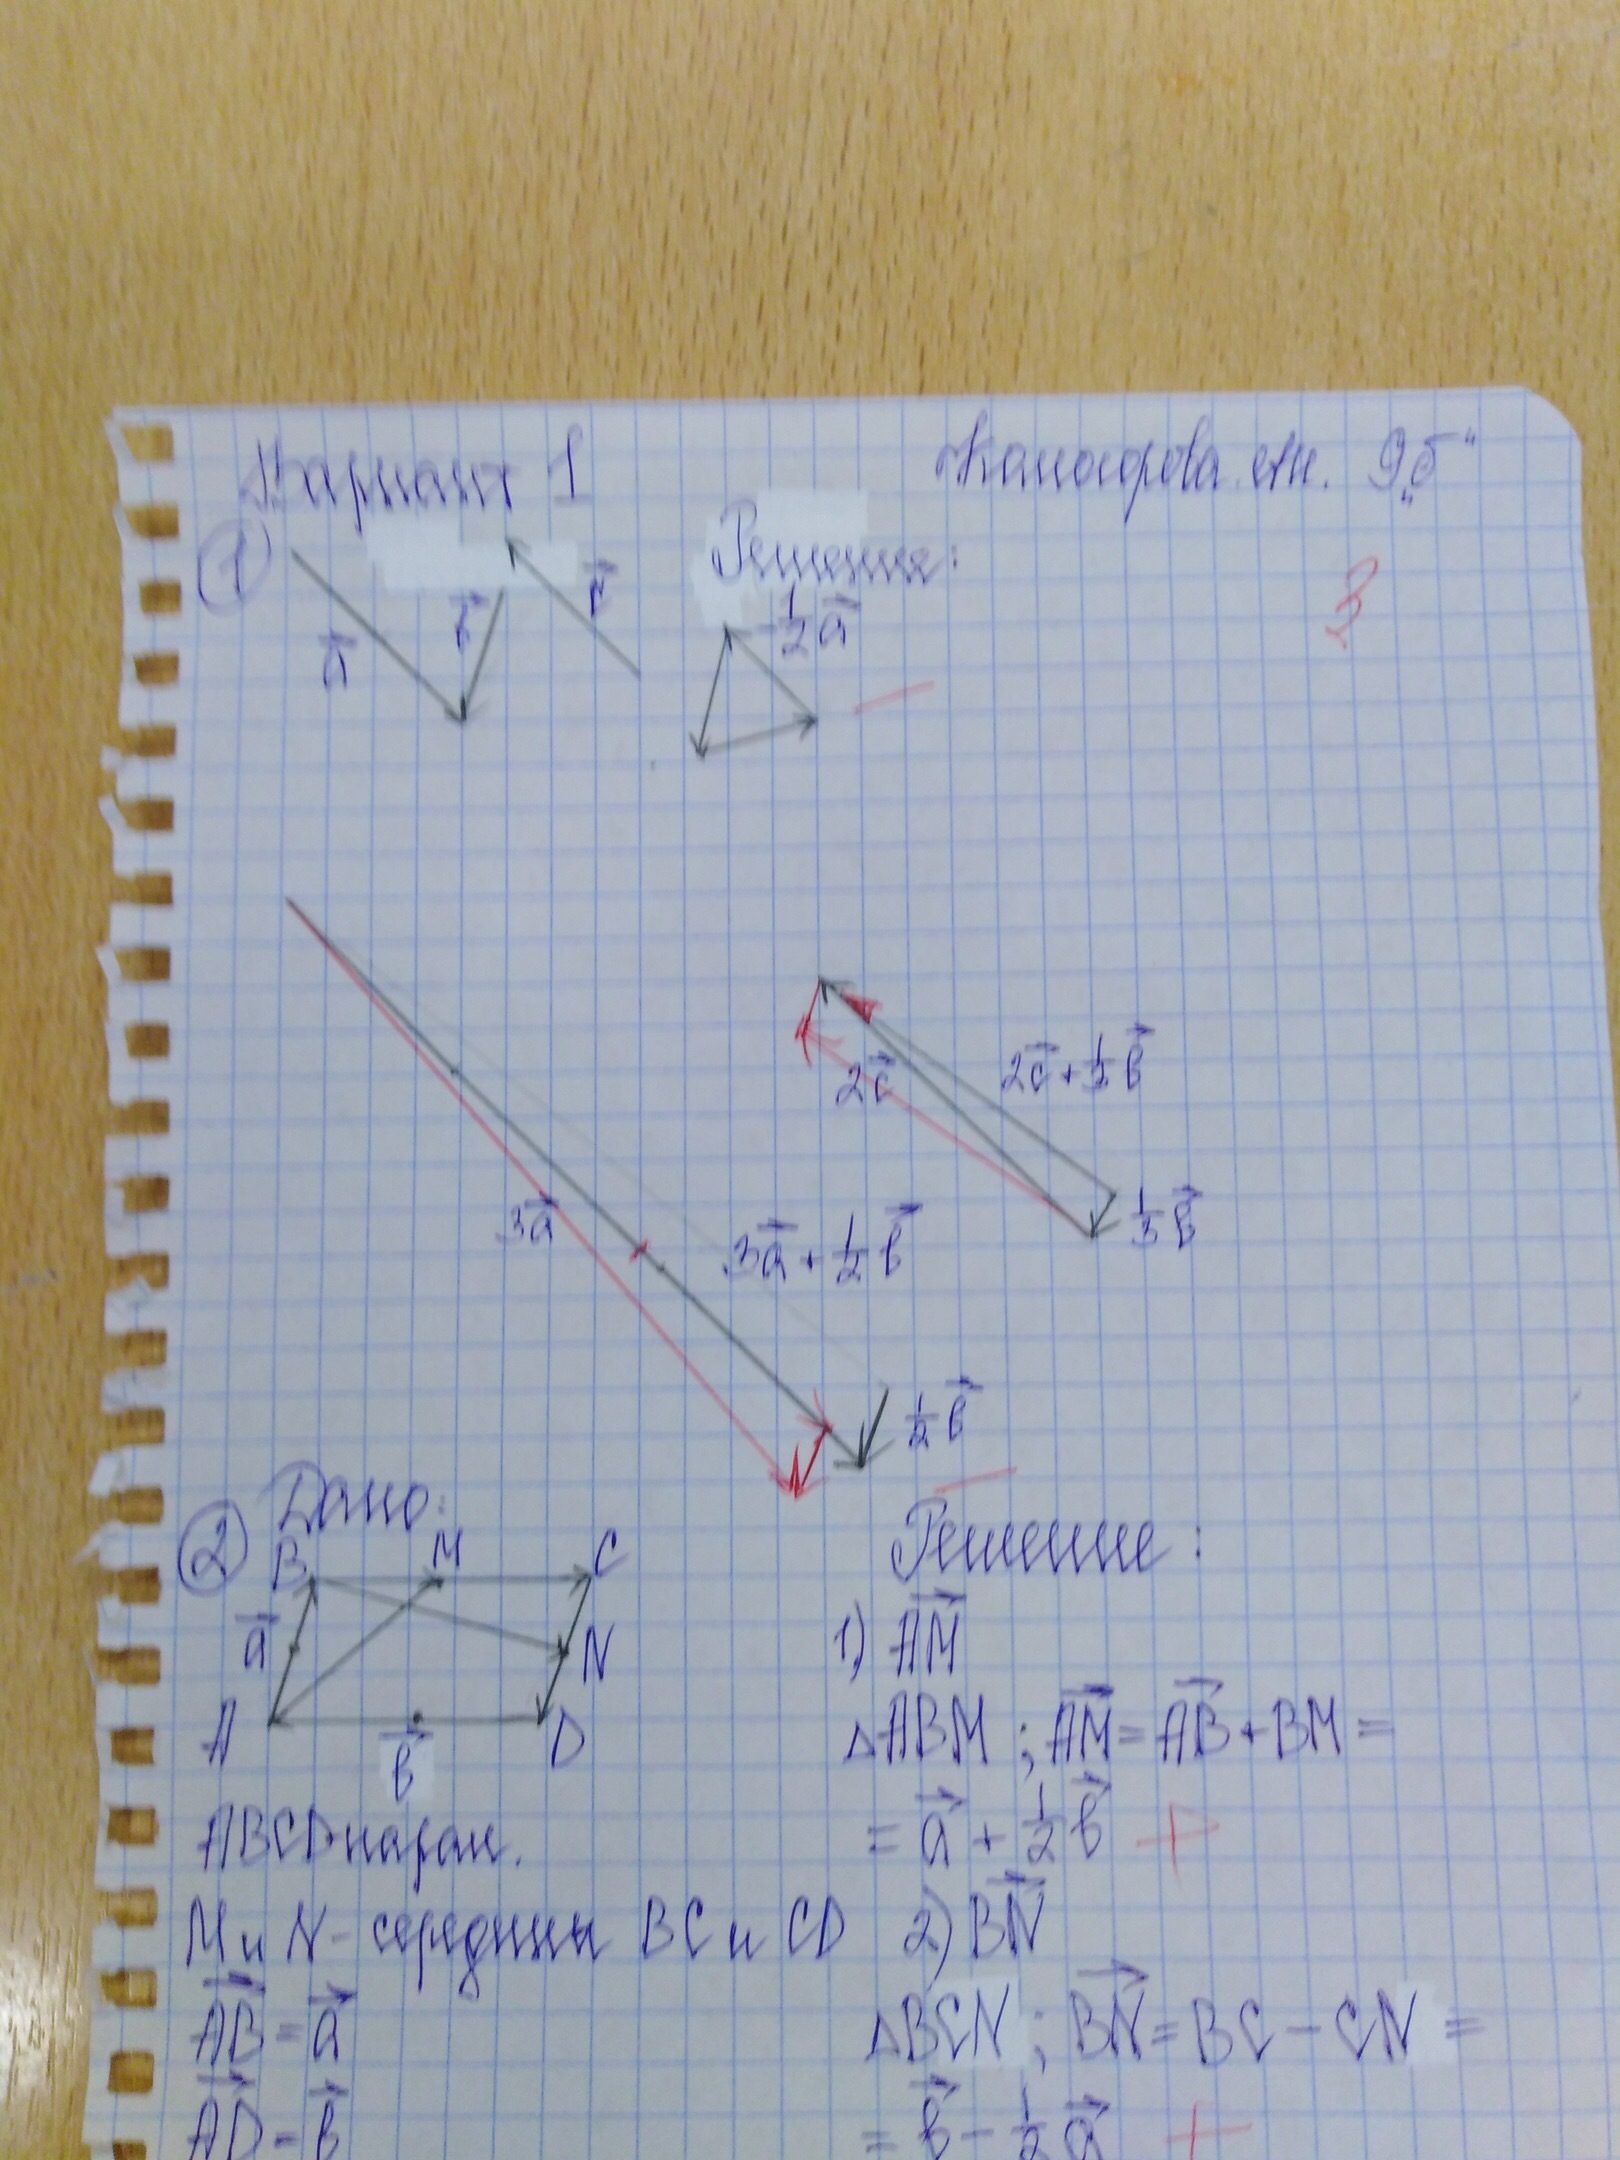 Вариант 1
9 "б"
1
a⃗
b⃗
c⃗
Решение:
-1/2 a⃗
3
2c⃗
2c⃗ + 1/2 b⃗
1/3 b⃗
3a⃗
3a⃗ + 1/2 b⃗
1/2 b⃗
2
Дано:
B M C
a⃗ N
A D
b⃗
ABCD парал.
M и N - середины BC и CD
AB⃗ = a⃗
AD⃗ = b⃗
Решение:
1) AM⃗
△ABM ; AM⃗ = AB⃗ + BM =
= a⃗ + 1/2 b⃗ +
2) BN⃗
△BCN ; BN⃗ = BC - CN =
= b⃗ - 1/2 a⃗ +